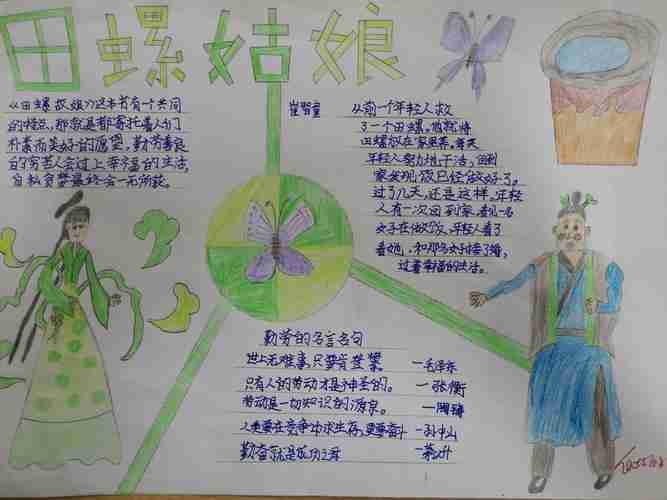 田螺姑娘
《田螺姑娘》这本书有一个共同
的特点，那就是都寄托着人们
朴素而美好的愿望，勤劳善良
的穷苦人会过上幸福的生活，
自私贪婪最终会一无所获。
从前一个年轻人救
了一个田螺，他就将
田螺放在家里养，每天
年轻人努力地干活，回到
家发现饭已经做好了。
过了几天，还是这样，年轻
人有一次回到家，看见一名
女子在做饭，年轻人看了
看她，和那名女子结了婚，
过着幸福的生活。
勤劳的名言名句
世上无难事，只要肯登攀 —毛泽东
只有人的劳动才是神圣的。
劳动是一切知识的源泉。 —陶铸
人类要在竞争中求生存，更要奋斗 —孙中山
勤奋就是成功之母